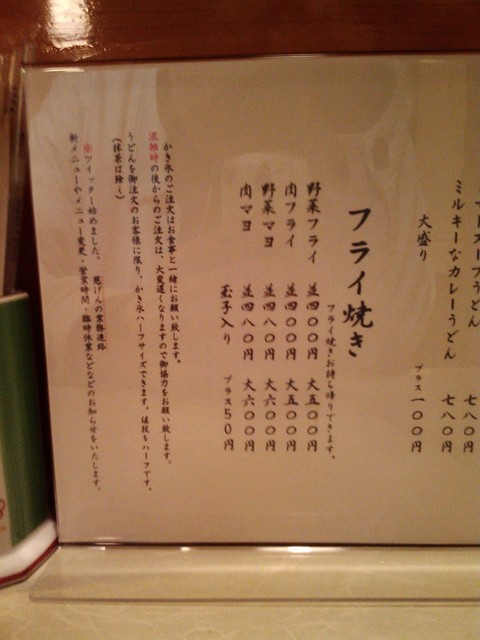 ミルキーなカレーうどん 七八〇円
大盛り プラス一〇〇円
フライ焼き
フライ焼きお持ち帰りできます。
野菜フライ 並四〇〇円 大五〇〇円
肉フライ 並四〇〇円 大五〇〇円
野菜マヨ 並四八〇円 大六〇〇円
肉マヨ 並四八〇円 大六〇〇円
玉子入り プラス50円
かき氷のご注文はお食事と一緒にお願い致します。
混雑時の後からのご注文は、大変遅くなりますので御協力をお願い致します。
うどんを御注文のお客様に限り、かき氷ハーフサイズできます。値段もハーフです。
(抹茶は除く)
※ツイッター始めました。 慈げんの業務連絡
新メニューやメニュー変更・営業時間・臨時休業などなどのお知らせをいたします。